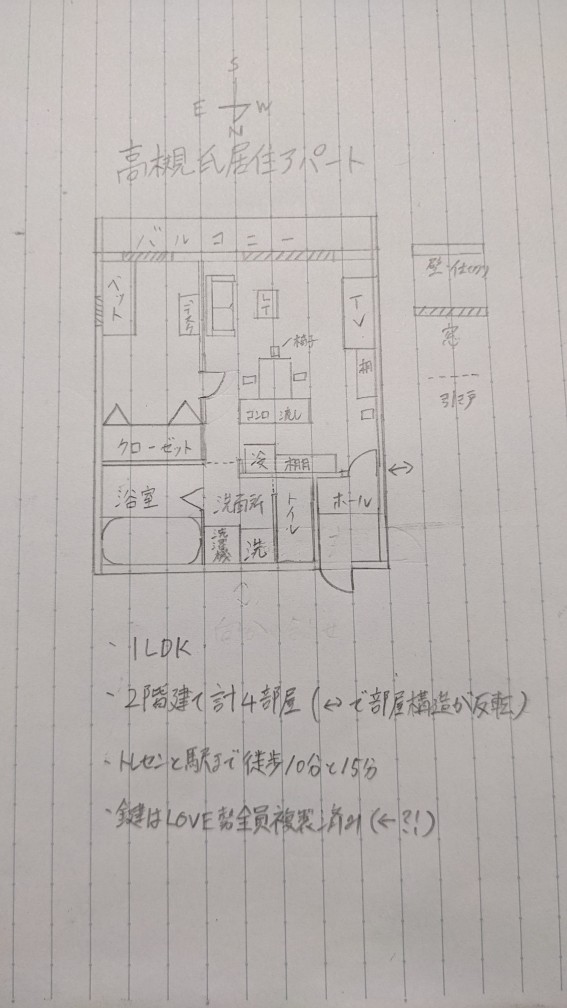 S
E W
N
高槻氏居住アパート
バルコニー
壁・仕切り
ベット
デスク
TV
窓
椅子
棚
引き戸
コンロ 流し
クローゼット
冷
棚
浴室
洗面所
トイレ
ホール
洗濯機
洗
・1LDK
・2階建て計4部屋(↔で部屋構造が反転)
・トレセンと駅まで徒歩10分と15分
・鍵はLOVE勢全員複製済み(←?!)